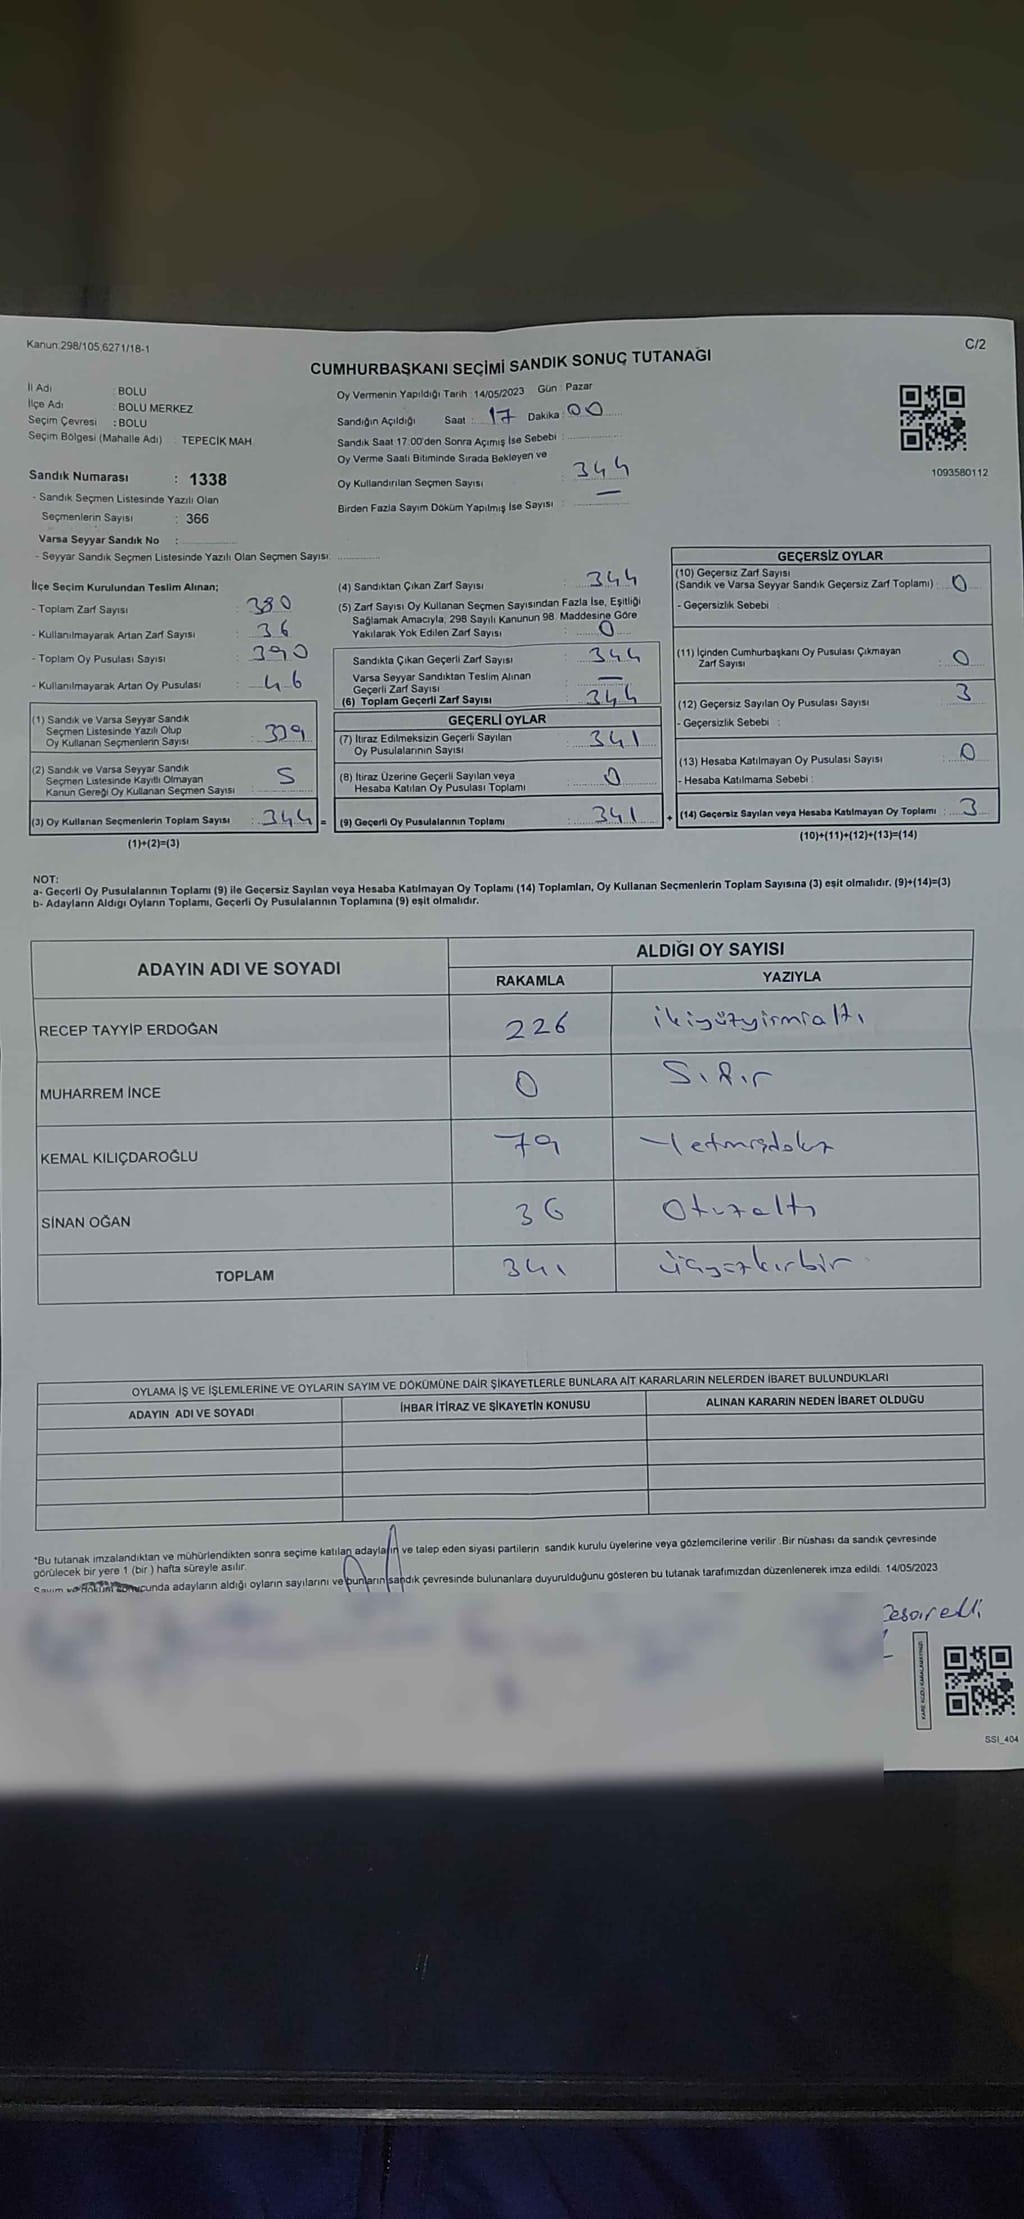 Kanun:298/105,6271/18-1
C/2
CUMHURBAŞKANI SEÇİMİ SANDIK SONUÇ TUTANAĞI
İl Adı : BOLU
İlçe Adı : BOLU MERKEZ
Seçim Çevresi : BOLU
Seçim Bölgesi (Mahalle Adı) : TEPECİK MAH
Sandık Numarası : 1338
- Sandık Seçmen Listesinde Yazılı Olan
Seçmenlerin Sayısı : 366
Varsa Seyyar Sandık No :
- Seyyar Sandık Seçmen Listesinde Yazılı Olan Seçmen Sayısı:
Oy Vermenin Yapıldığı Tarih : 14/05/2023 Gün : Pazar
Sandığın Açıldığı Saat : 17 Dakika : 00
Sandık Saat 17.00'den Sonra Açımış İse Sebebi :
Oy Verme Saati Bitiminde Sırada Bekleyen ve
Oy Kullandırılan Seçmen Sayısı : 344
Birden Fazla Sayım Döküm Yapılmış İse Sayısı : —
1093580112
İlçe Seçim Kurulundan Teslim Alınan;
- Toplam Zarf Sayısı : 380
- Kullanılmayarak Artan Zarf Sayısı : 36
- Toplam Oy Pusulası Sayısı : 390
- Kullanılmayarak Artan Oy Pusulası : 46
(1) Sandık ve Varsa Seyyar Sandık
Seçmen Listesinde Yazılı Olup
Oy Kullanan Seçmenlerin Sayısı : 339
(2) Sandık ve Varsa Seyyar Sandık
Seçmen Listesinde Kayıtlı Olmayan
Kanun Gereği Oy Kullanan Seçmen Sayısı : 5
(3) Oy Kullanan Seçmenlerin Toplam Sayısı : 344 =
(1)+(2)=(3)
(4) Sandıktan Çıkan Zarf Sayısı : 344
(5) Zarf Sayısı Oy Kullanan Seçmen Sayısından Fazla İse, Eşitliği
Sağlamak Amacıyla, 298 Sayılı Kanunun 98. Maddesine Göre
Yakılarak Yok Edilen Zarf Sayısı : 0
Sandıkta Çıkan Geçerli Zarf Sayısı : 344
Varsa Seyyar Sandıktan Teslim Alınan
Geçerli Zarf Sayısı : —
(6) Toplam Geçerli Zarf Sayısı : 344
GEÇERLİ OYLAR
(7) İtiraz Edilmeksizin Geçerli Sayılan
Oy Pusulalarının Sayısı : 341
(8) İtiraz Üzerine Geçerli Sayılan veya
Hesaba Katılan Oy Pusulası Toplamı : 0
(9) Geçerli Oy Pusulalarının Toplamı : 341 +
GEÇERSİZ OYLAR
(10) Geçersiz Zarf Sayısı
(Sandık ve Varsa Seyyar Sandık Geçersiz Zarf Toplamı) : 0
- Geçersizlik Sebebi :
(11) İçinden Cumhurbaşkanı Oy Pusulası Çıkmayan
Zarf Sayısı : 0
(12) Geçersiz Sayılan Oy Pusulası Sayısı : 3
- Geçersizlik Sebebi :
(13) Hesaba Katılmayan Oy Pusulası Sayısı : 0
- Hesaba Katılmama Sebebi :
(14) Geçersiz Sayılan veya Hesaba Katılmayan Oy Toplamı : 3
(10)+(11)+(12)+(13)=(14)
NOT:
a- Geçerli Oy Pusulalarının Toplamı (9) ile Geçersiz Sayılan veya Hesaba Katılmayan Oy Toplamı (14) Toplamları, Oy Kullanan Seçmenlerin Toplam Sayısına (3) eşit olmalıdır. (9)+(14)=(3)
b- Adayların Aldığı Oyların Toplamı, Geçerli Oy Pusulalarının Toplamına (9) eşit olmalıdır.
ADAYIN ADI VE SOYADI
ALDIĞI OY SAYISI
RAKAMLA YAZIYLA
RECEP TAYYİP ERDOĞAN 226 ikiyüzyirmialtı
MUHARREM İNCE 0 Sıfır
KEMAL KILIÇDAROĞLU 79 Yetmişdokuz
SİNAN OĞAN 36 Otuzaltı
TOPLAM 341 üçyüzkırbir
OYLAMA İŞ VE İŞLEMLERİNE VE OYLARIN SAYIM VE DÖKÜMÜNE DAİR ŞİKAYETLERLE BUNLARA AİT KARARLARIN NELERDEN İBARET BULUNDUKLARI
ADAYIN ADI VE SOYADI İHBAR İTİRAZ VE ŞİKAYETİN KONUSU ALINAN KARARIN NEDEN İBARET OLDUĞU
*Bu tutanak imzalandıktan ve mühürlendikten sonra seçime katılan adayların ve talep eden siyasi partilerin sandık kurulu üyelerine veya gözlemcilerine verilir .Bir nüshası da sandık çevresinde
görülecek bir yere 1 (bir ) hafta süreyle asılır.
Sayım ve döküm sonucunda adayların aldığı oyların sayılarını ve bunların sandık çevresinde bulunanlara duyurulduğunu gösteren bu tutanak tarafımızdan düzenlenerek imza edildi. 14/05/2023
SSI_404